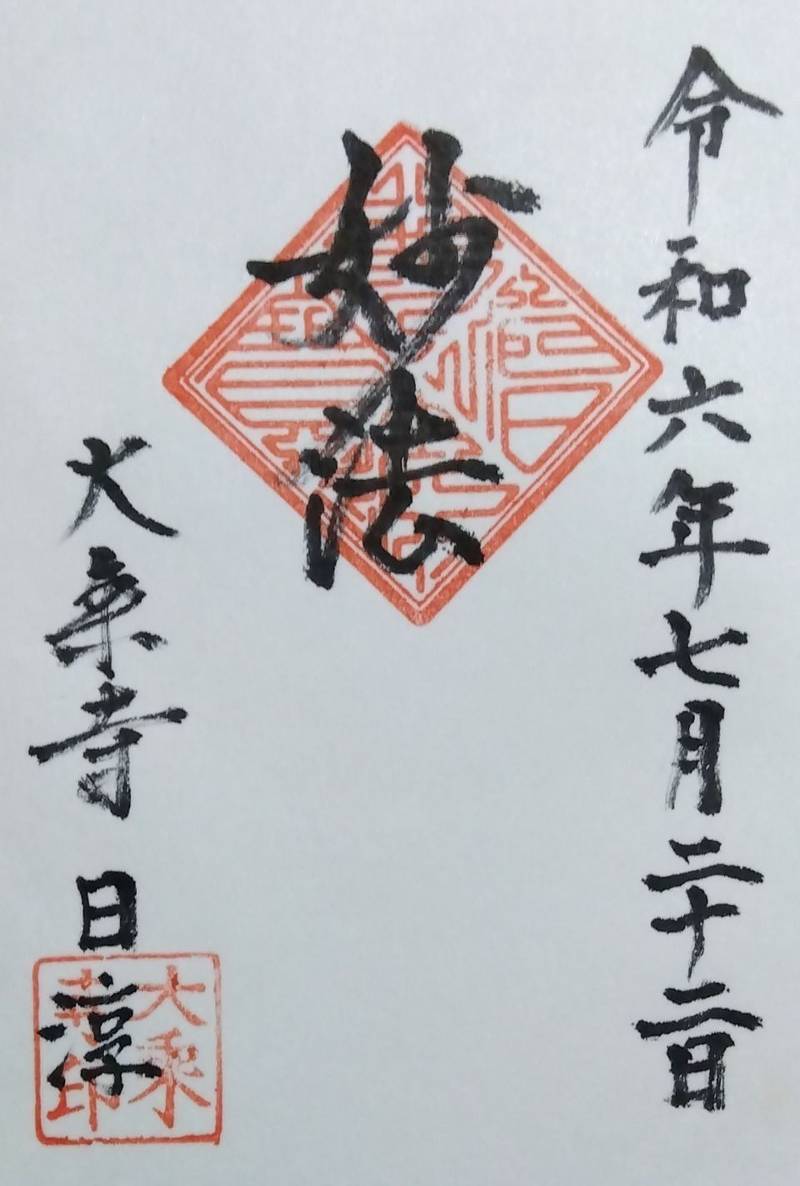 令和六年七月二十二日
妙法
大乗寺
日淳
大乗
寺印